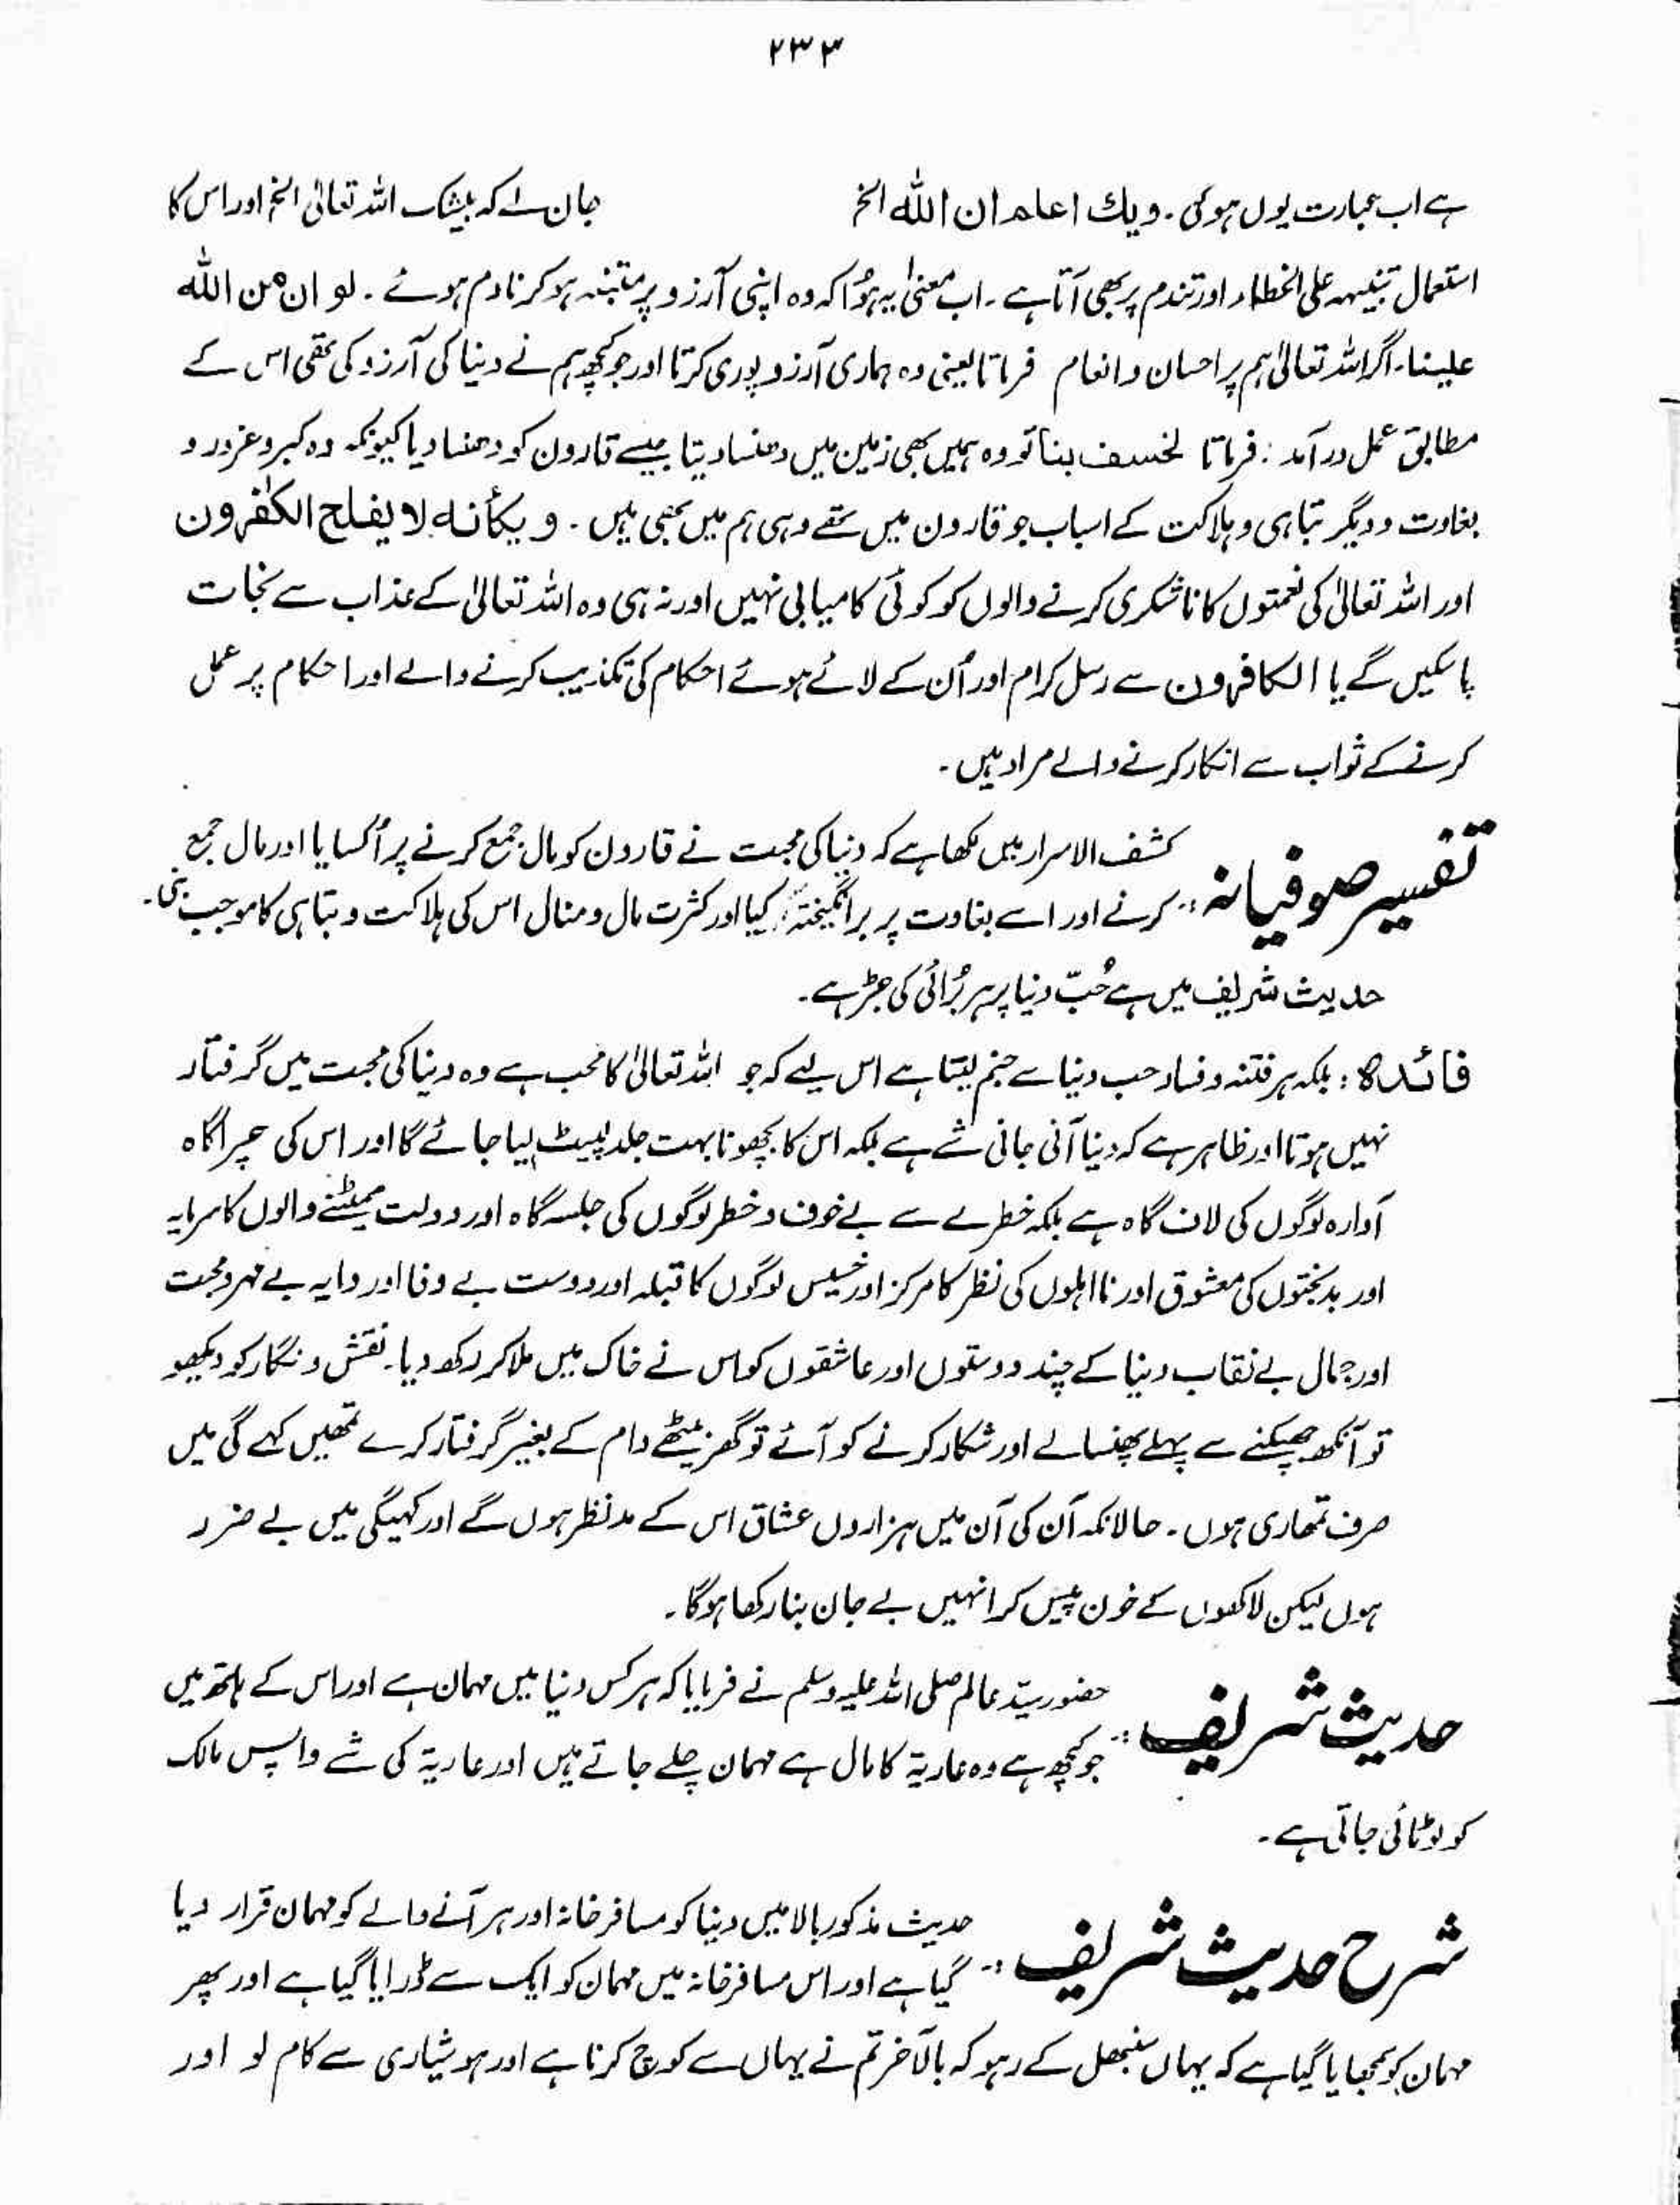 ۲۳۳
ہے اب عبارت یوں ہوگی۔ ویك اعلم ان الله الخ جان لے کہ بیشک اللہ تعالیٰ الخ اور اس کا
استعمال تنبیہہ علی الخطاء اور تندم پر بھی آتا ہے۔ اب معنیٰ یہ ہُوا کہ وہ اپنی آرزو پر متنبہ ہو کر نادم ہوئے۔ لو ان من الله
علینا۔ اگر اللہ تعالیٰ ہم پر احسان و انعام فرماتا یعنی وہ ہماری آرزو پوری کرتا اور جو کچھ ہم نے دنیا کی آرزو کی تھی اس کے
مطابق عمل در آمد فرماتا لخسف بنا تو وہ ہمیں بھی زمین میں دھنسا دیتا جیسے قارون کو دھنسا دیا کیونکہ وہ کبر و غرور و
بغاوت و دیگر تباہی و ہلاکت کے اسباب جو قارون میں تھے وہی ہم میں بھی ہیں۔ ویکأنه لا یفلح الکٰفرون
اور اللہ تعالیٰ کی نعمتوں کا ناشکری کرنے والوں کو کوئی کامیابی نہیں اور نہ ہی وہ اللہ تعالیٰ کے عذاب سے نجات
پا سکیں گے یا الکافرون سے رسل کرام اور اُن کے لائے ہوئے احکام کی تکذیب کرنے والے اور احکام پر عمل
کرنے کے ثواب سے انکار کرنے والے مراد ہیں۔
تفسیر صوفیانہ: کشف الاسرار میں لکھا ہے کہ دنیا کی محبت نے قارون کو مال جمع کرنے پر اُکسایا اور مال جمع
کرنے اور اسے بغاوت پر برانگیختہ کیا اور کثرت مال و منال اس کی ہلاکت و تباہی کا موجب بنی۔
حدیث شریف میں ہے حُبّ دنیا پر ہر بُرائی کی جڑ ہے۔
فائدہ: بلکہ ہر فتنہ و فساد حب دنیا سے جنم لیتا ہے اس لیے کہ جو اللہ تعالیٰ کا محب ہے وہ دنیا کی محبت میں گرفتار
نہیں ہوتا اور ظاہر ہے کہ دنیا آنی جانی شے ہے بلکہ اس کا بچھونا بہت جلد لپیٹ لیا جائے گا اور اس کی چراگاہ
آوارہ لوگوں کی لاف گاہ ہے بلکہ خطرے سے بے خوف و خطر لوگوں کی جلسہ گاہ اور دولت سمیٹنے والوں کا سرمایہ
اور بدبختوں کی معشوق اور نااہلوں کی نظر کا مرکز اور خسیس لوگوں کا قبلہ اور دوست بے وفا اور دایہ بے مہر و محبت
اور جمال بے نقاب دنیا کے چند دوستوں اور عاشقوں کو اس نے خاک میں ملا کر رکھ دیا۔ نقش و نگار کو دیکھو
تو آنکھ جھپکنے سے پہلے پھنسالے اور شکار کرنے کو آئے تو گھر بیٹھے دام کے بغیر گرفتار کرے تمھیں کہے گی میں
صرف تمھاری ہوں۔ حالانکہ آن کی آن میں ہزاروں عشاق اس کے مد نظر ہوں گے اور کہیگی میں بے ضرر
ہوں لیکن لاکھوں کے خون پیس کر انہیں بے جان بنا رکھا ہوگا۔
حدیث شریف: حضور سیّد عالم صلی اللہ علیہ وسلم نے فرمایا کہ ہر کس دنیا میں مہمان ہے اور اس کے ہاتھ میں
جو کچھ ہے وہ عاریۃ کا مال ہے مہمان چلے جاتے ہیں اور عاریۃ کی شے واپس مالک
کو لوٹائی جاتی ہے۔
شرح حدیث شریف: حدیث مذکور بالا میں دنیا کو مسافر خانہ اور ہر آنے والے کو مہمان قرار دیا
گیا ہے اور اس مسافر خانہ میں مہمان کو ایک سے ڈرایا گیا ہے اور پھر
مہمان کو سمجھایا گیا ہے کہ یہاں سنبھل کے رہو کہ بالآخر تم نے یہاں سے کوچ کرنا ہے اور ہوشیاری سے کام لو اور